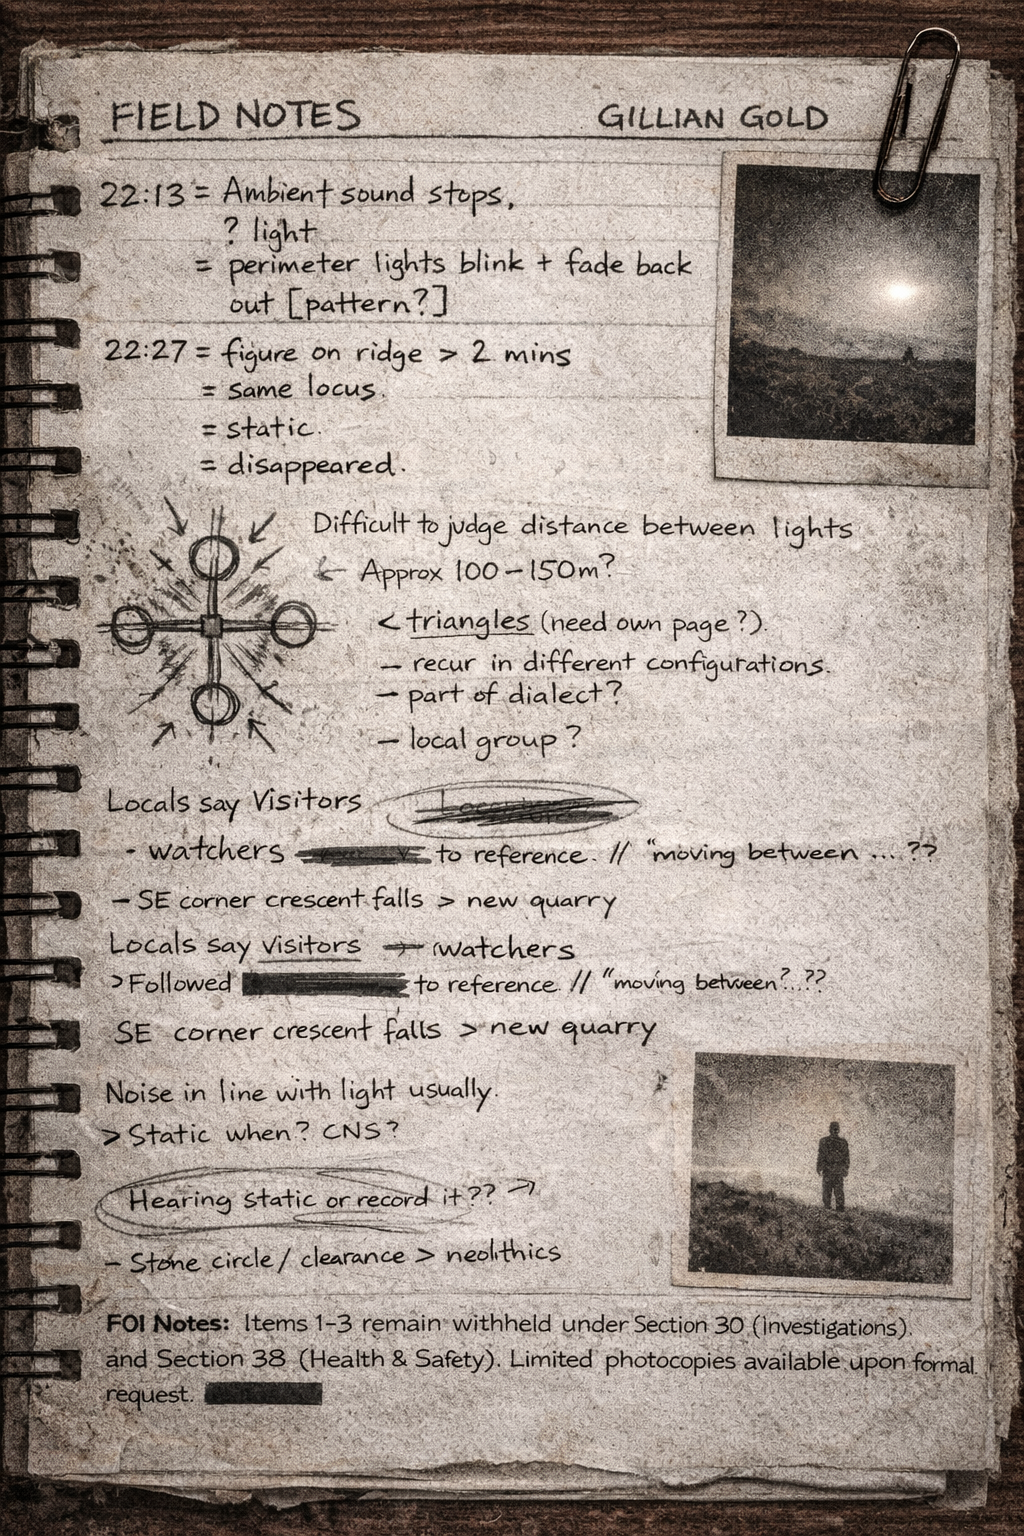 FIELD NOTES GILLIAN GOLD
22:13 = Ambient sound stops,
? light
= perimeter lights blink + fade back
out [pattern?]
22:27 = figure on ridge > 2 mins
= same locus.
= static.
= disappeared.
Difficult to judge distance between lights
← Approx 100-150m?
< triangles (need own page?).
- recur in different configurations.
- part of dialect?
- local group?
Locals say Visitors
- watchers to reference. // "moving between ... ??
- SE corner crescent falls > new quarry
Locals say visitors → watchers
> Followed to reference // "moving between?..??
SE corner crescent falls > new quarry
Noise in line with light usually.
> Static when? CNS?
Hearing static or record it?? →
- Stone circle / clearance > neolithics
FOI Notes: Items 1-3 remain withheld under Section 30 (Investigations).
and Section 38 (Health & Safety). Limited photocopies available upon formal
request.